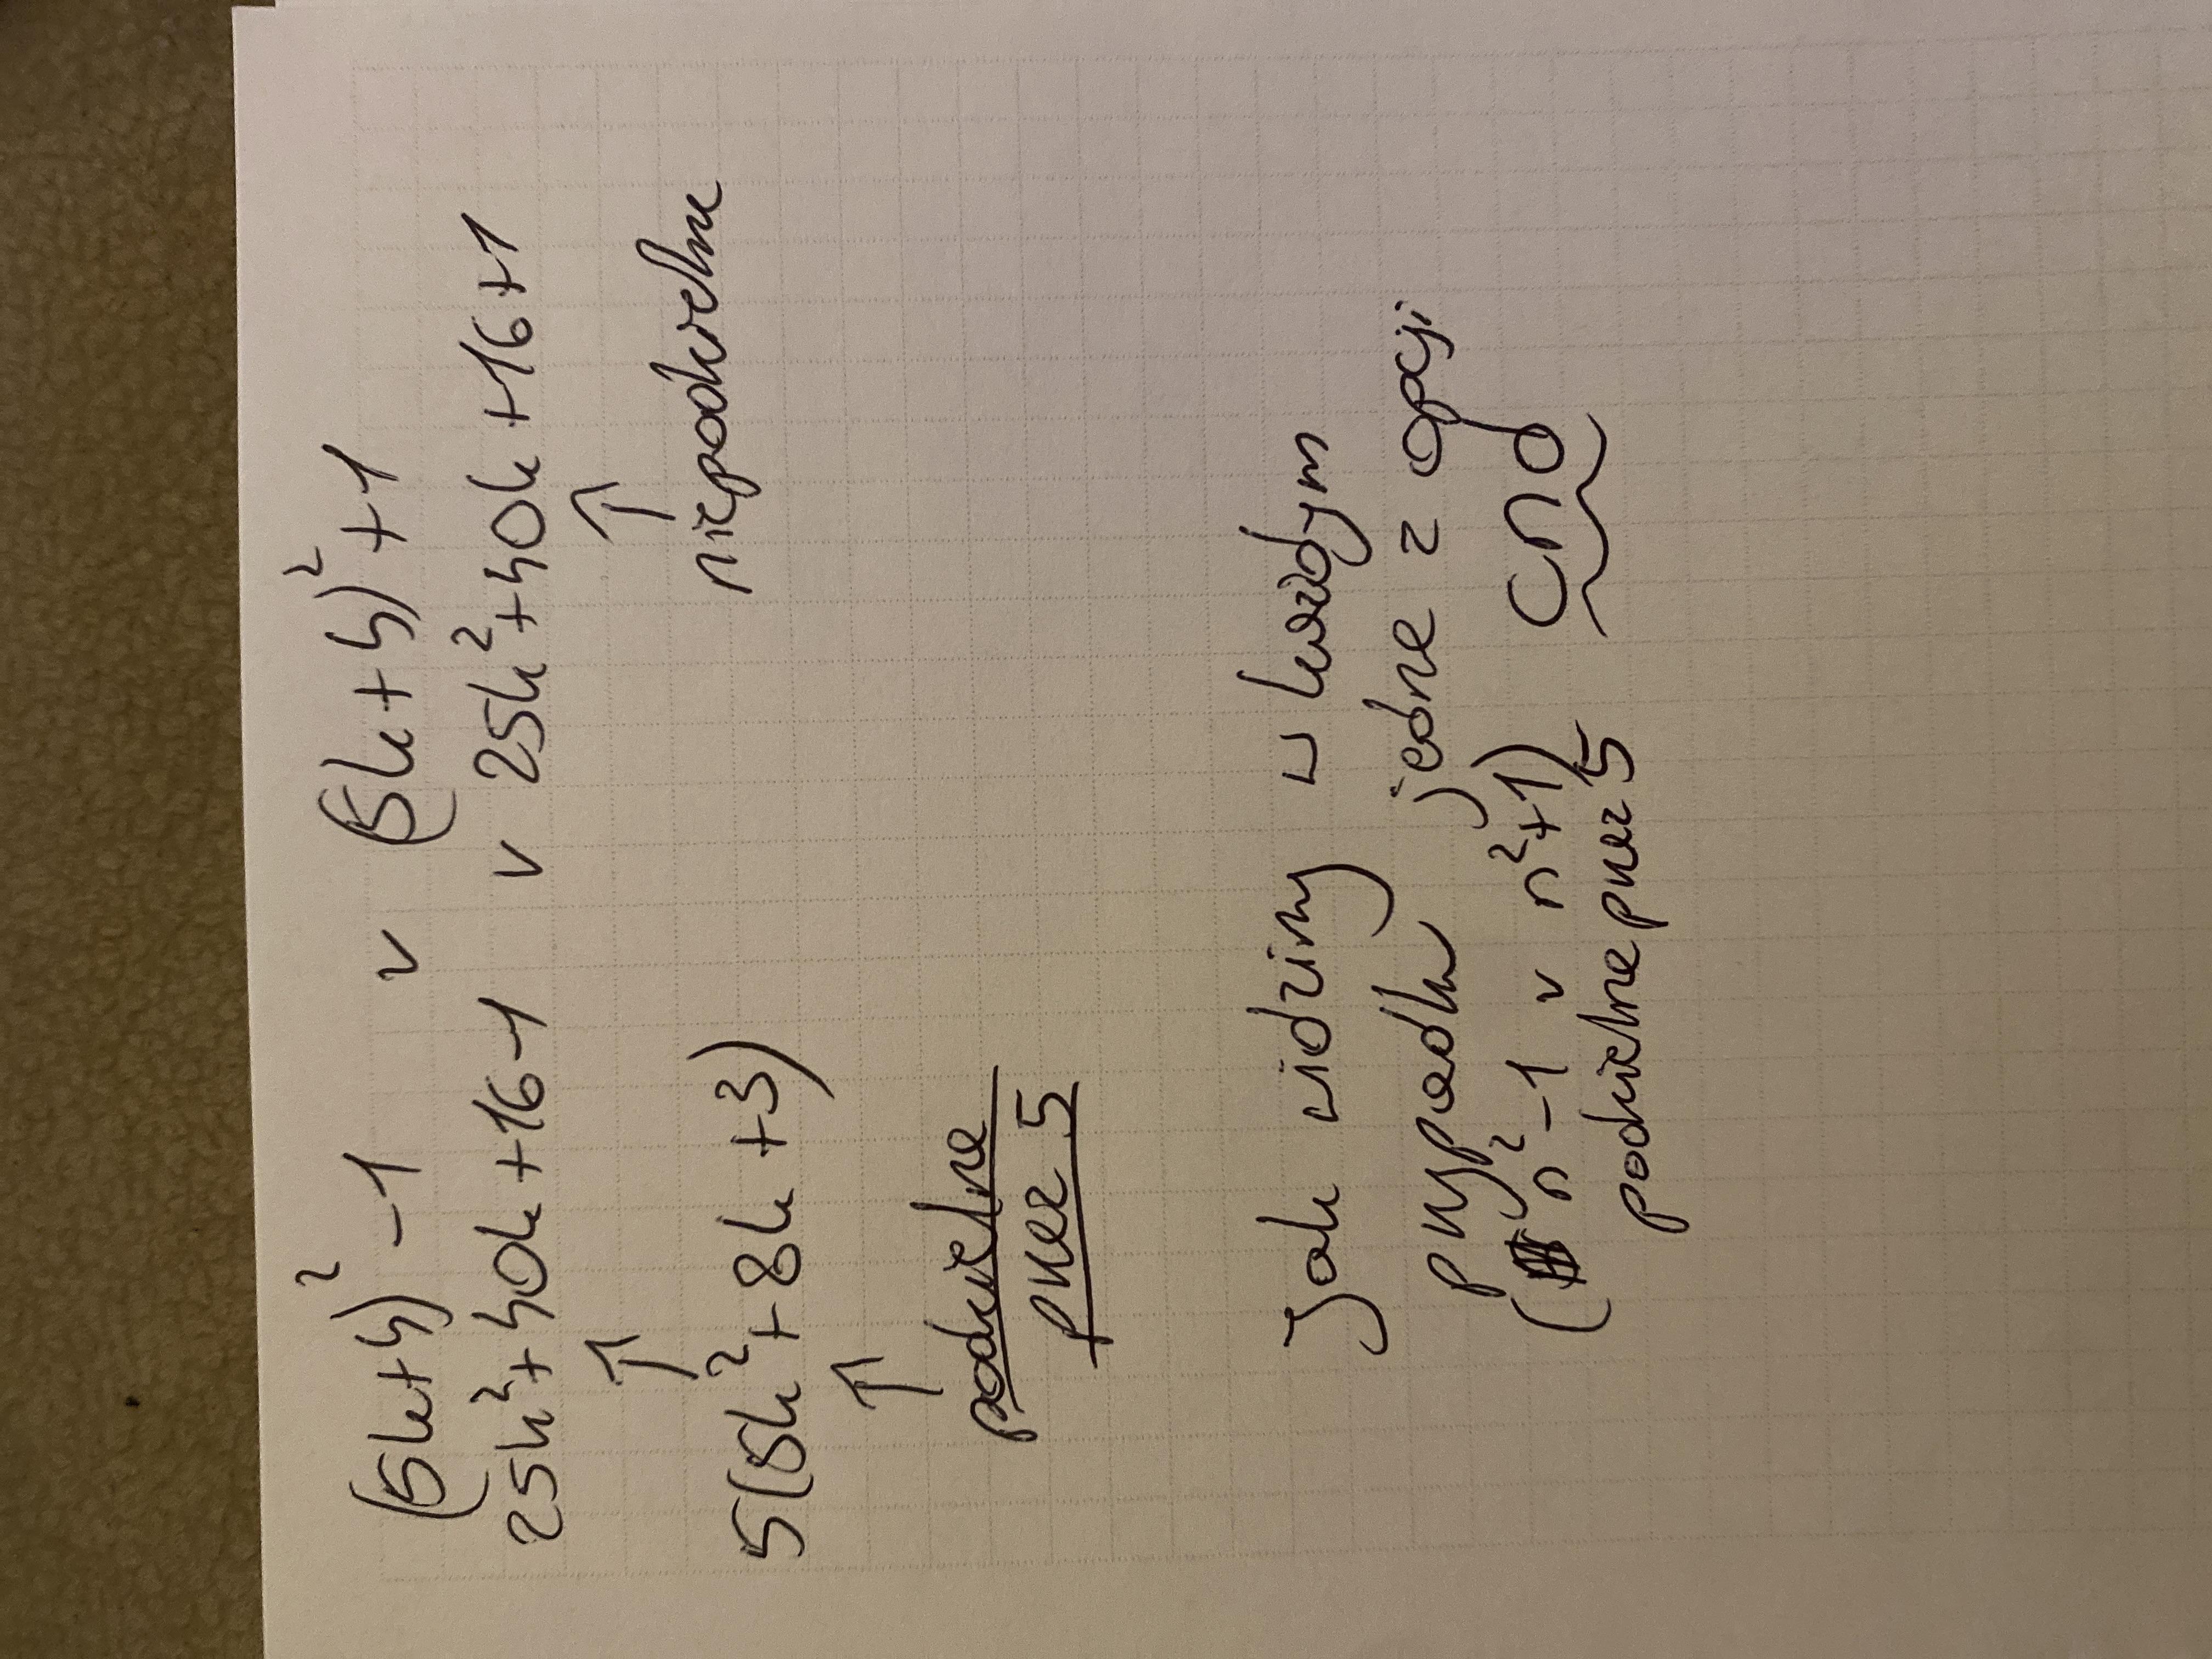 (5k+4)² -1 v (5k+4)² +1
25k²+40k+16-1 v 25k²+40k+16+1
↑ ↑
5(5k²+8k+3) niepodzielne
↑
podzielne
przez 5
Jak widzimy w każdym
przypadku jedne z opcji
(n²-1 v n²+1) cnd
podzielne przez 5